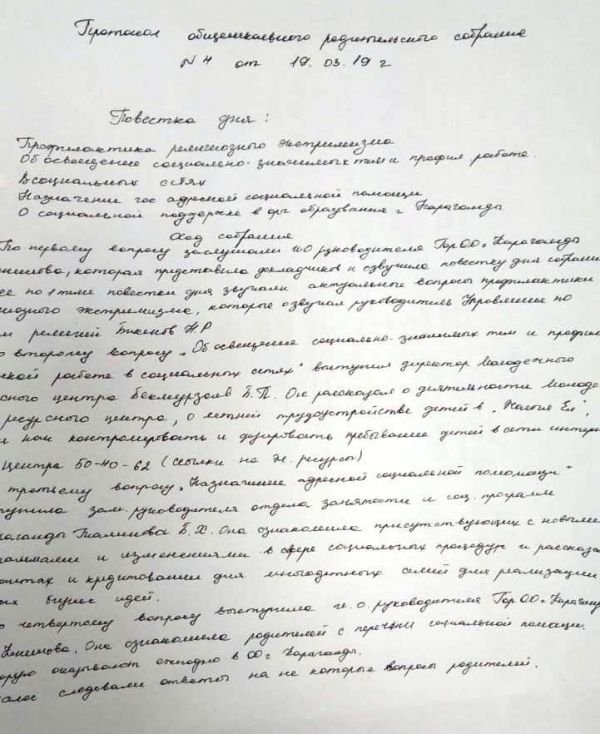 Протокол общешкольного родительского собрание
N 4 от 19. 03. 19 г
Повестка дня:
Профилактика религиозного экстримизма
Об освещение социально-значимых тем и профил работе.
В социальных сетях
Назначение гос адресной социальной помощи
О социальной поддержке в орг образования г Караганды
Ход собрания
По первому вопросу заслушали ИО руководителя Гор ОО г Караганды
которая представила докладчиков и озвучила повестку дня собрания
по 1 теме повестки дня звучали актуальные вопросы профилактики
экстримизма, которые озвучил руководитель Управление по
религий Бикенов Ж.Р
второму вопросу „Об освещение социально-значимых тем и профил
работе в социальных сетях" выступил директор Молодежного
центра Б.П. Он рассказал о деятельности Молоде
ресурсного центра, о летней трудоустройстве детей в „Жасыл Ел",
и как контролировать и дозировать пребывание детей в сети интер
Центра 50-40-62 (ссылки на эл. ресурсы)
третьему вопросу „Назначение адресной социальной помощи"
зам. руководителя отдела занятости и соц. программ
Б.Х. Она ознакомила присутствующих с новыми
и изменениями в сфере социальных процедур и рассказа
и кредитовании для многодетных семей для реализации
бизнес идей.
четвертому вопросу выступила и. о руководителя Гор ОО г Караганд
Она ознакомила родителей с перечни социальной помощи.
оказывают ежегодно в ОО г Караганды.
следовали ответы на не которые вопросы родителей.